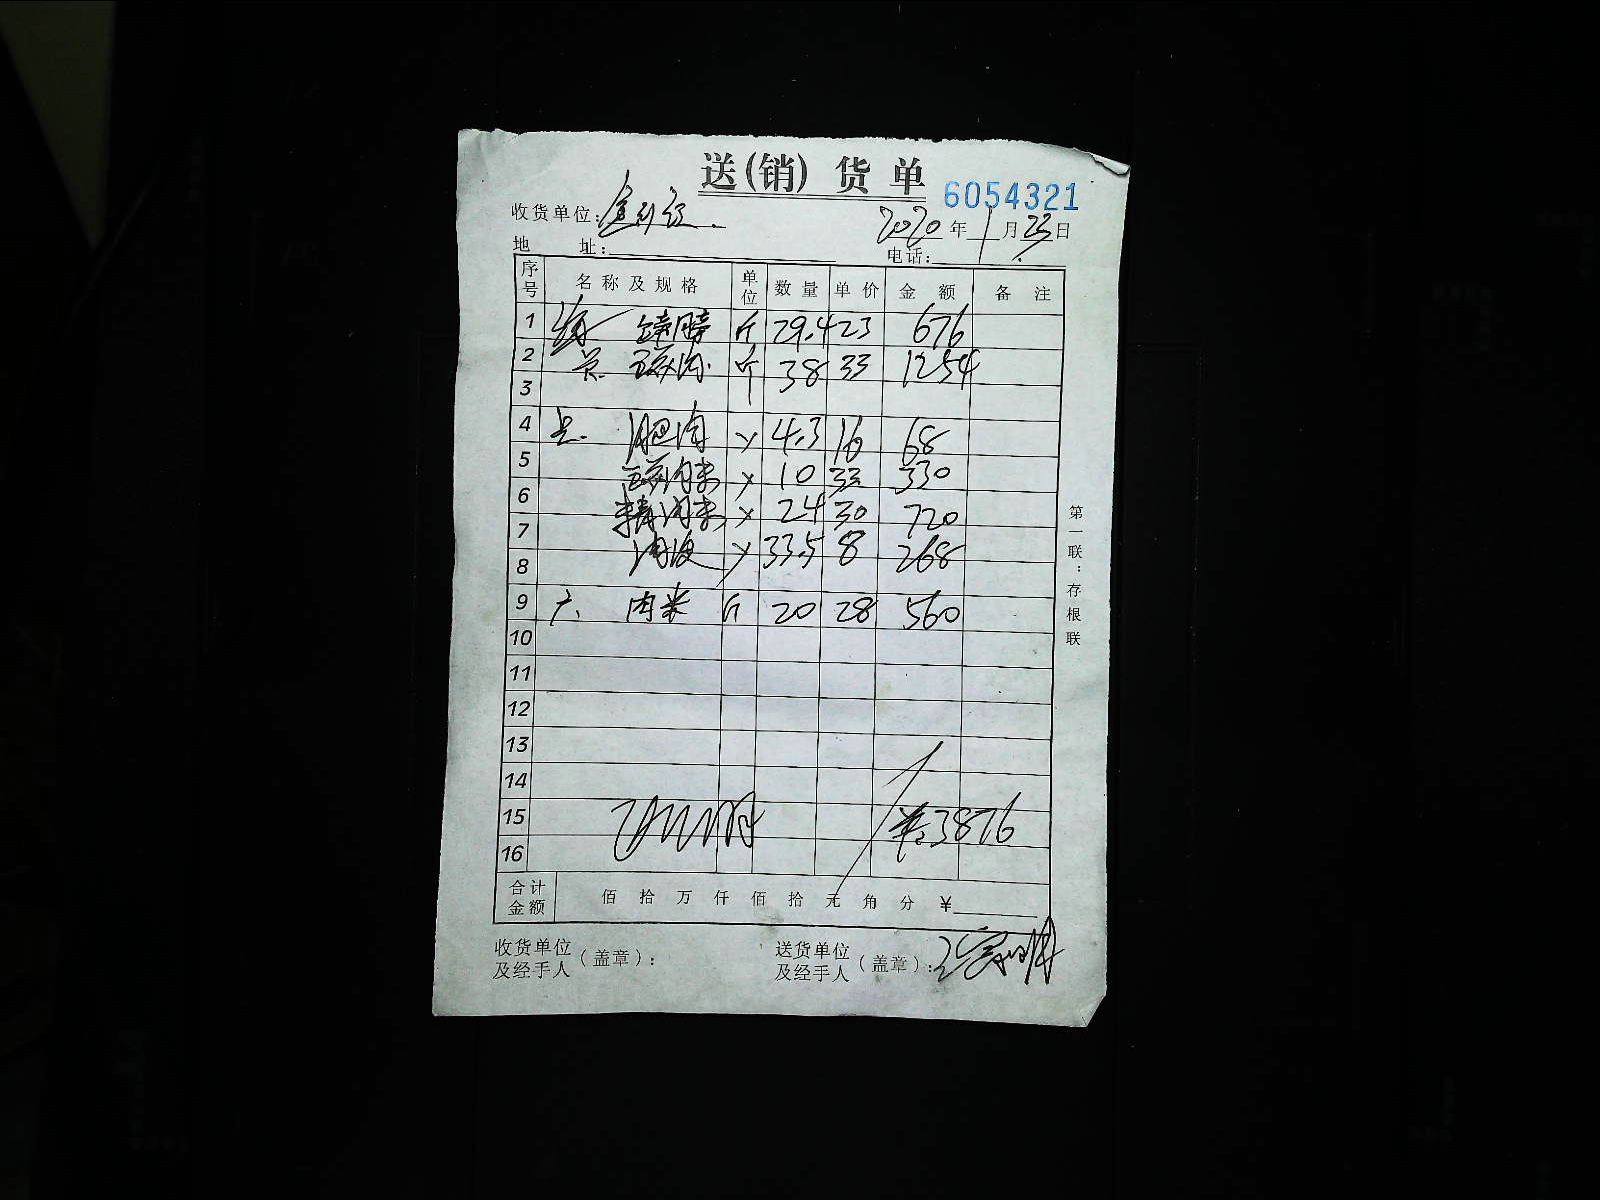 送(销)货单
6054321
收货单位:
2020年1月23日
地 址: 电话:
序号 名称及规格 单位 数量 单价 金额 备注
1 斤 29.4 23 676
2 斤 38 33 1254
3
4 五. 肥肉 4.3 16 68
5 肉末 10 33 330
6 精肉末 24 30 720
7 肉皮 33.5 8 268
8
9 六. 肉米 斤 20 28 560
10
11
12
13
14
15 3876
16
合计金额 佰 拾 万 仟 佰 拾 元 角 分 ¥
收货单位及经手人(盖章):
送货单位及经手人(盖章):
第一联:存根联